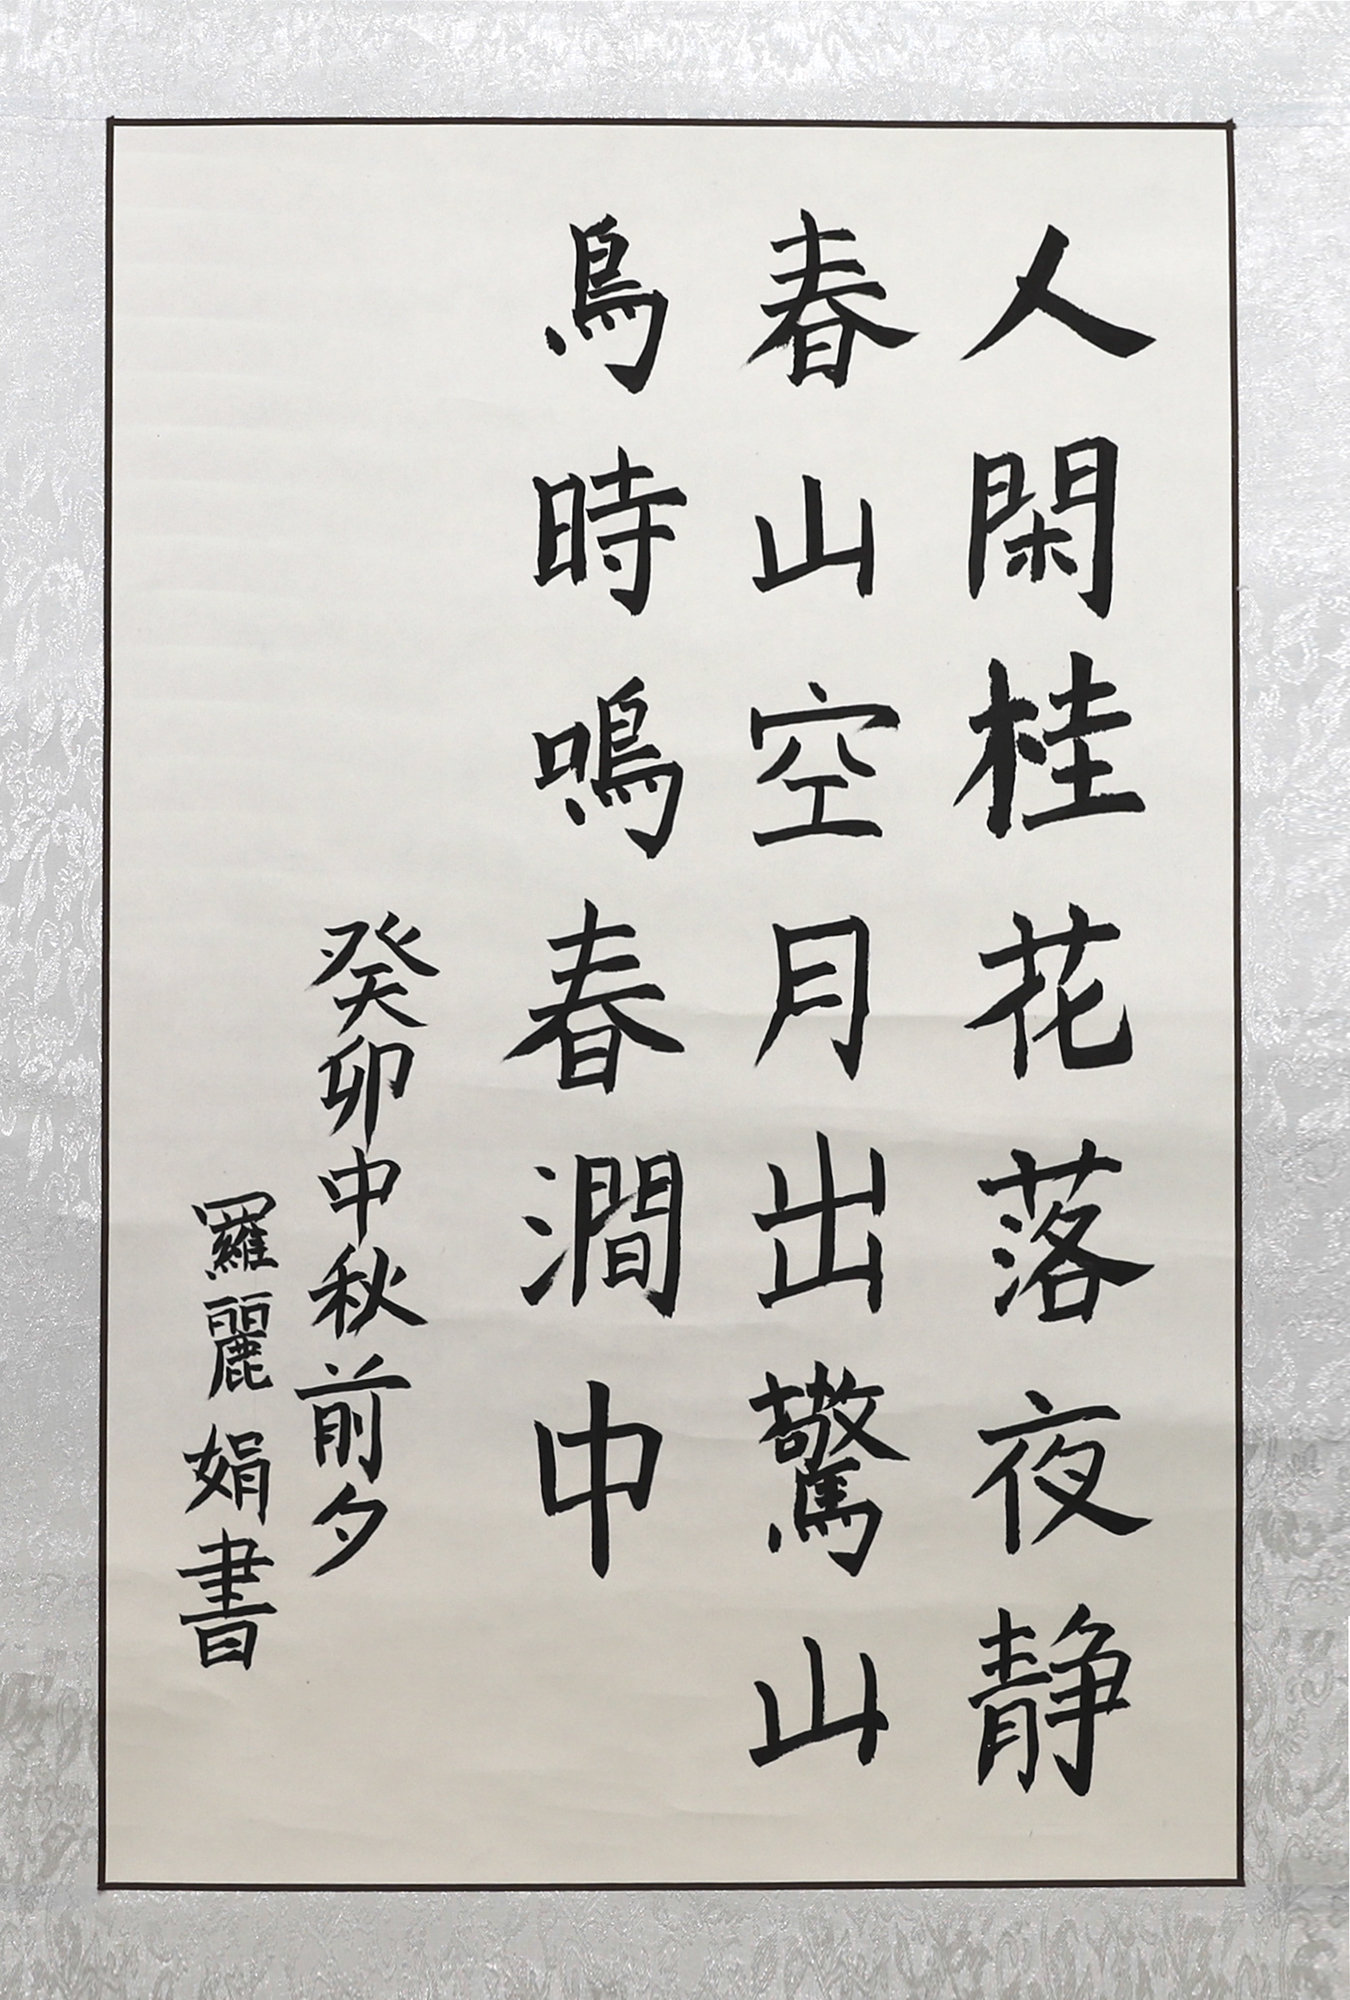 人閑桂花落夜静
春山空月出驚山
鳥時鳴春澗中
癸卯中秋前夕
羅麗娟書